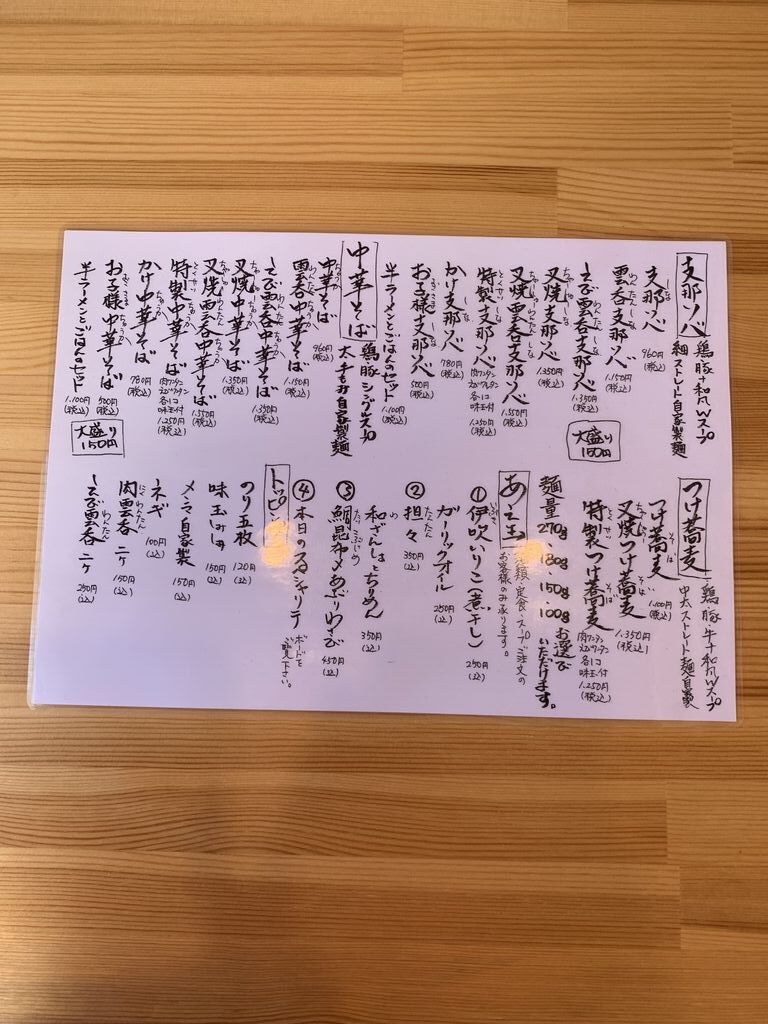 支那ソバ 鶏豚+和風Wスープ
細ストレート自家製麺
支那ソバ 960円(税込)
雲呑支那ソバ 1,150円(税込)
えび雲呑支那ソバ 1,350円(税込)
叉焼支那ソバ 1,350円(税込)
叉焼雲呑支那ソバ 1,550円(税込)
特製支那ソバ 肉ワンタン えびワンタン 各1コ 味玉付 1,250円(税込)
かけ支那ソバ 780円(税込)
お子様支那ソバ 500円(税込)
半ラーメンとごはんのセット 1,100円(税込)
大盛り 150円
中華そば 鶏豚シングルスープ
太手もみ自家製麺
中華そば 960円(税込)
雲呑中華そば 1,150円(税込)
えび雲呑中華そば 1,350円(税込)
叉焼中華そば 1,350円(税込)
叉焼雲呑中華そば 1,550円(税込)
特製中華そば 肉ワンタン えびワンタン 各1コ 味玉付 1,250円(税込)
かけ中華そば 780円(税込)
お子様中華そば 500円(税込)
半ラーメンとごはんのセット 1,100円(税込)
大盛り 150円
つけ蕎麦 鶏豚牛+和風Wスープ
中太ストレート麺自家製
つけ蕎麦 1,100円(税込)
叉焼つけ蕎麦 1,350円(税込)
特製つけ蕎麦 肉ワンタン えびワンタン 各1コ 味玉付 1,250円(税込)
麺量 270g、180g、150g、100g お選びいただけます。
あえ玉 麺類・定食・スープご注文の
お客様のみ承ります。
① 伊吹いりこ(煮干し) 250円(込)
ガーリックオイル 250円(込)
② 担々 350円(込)
③ 和ざんしょとちりめん 350円(込)
鯛昆布〆あぶりわさび 450円(込)
④ 本日のスペシャリテ ボードをご覧下さい。
トッピング
のり五枚 120円(込)
味玉 150円(込)
メンマ自家製 150円(込)
ネギ 100円(込)
肉雲呑 二ケ 150円(込)
えび雲呑 二ケ 250円(込)